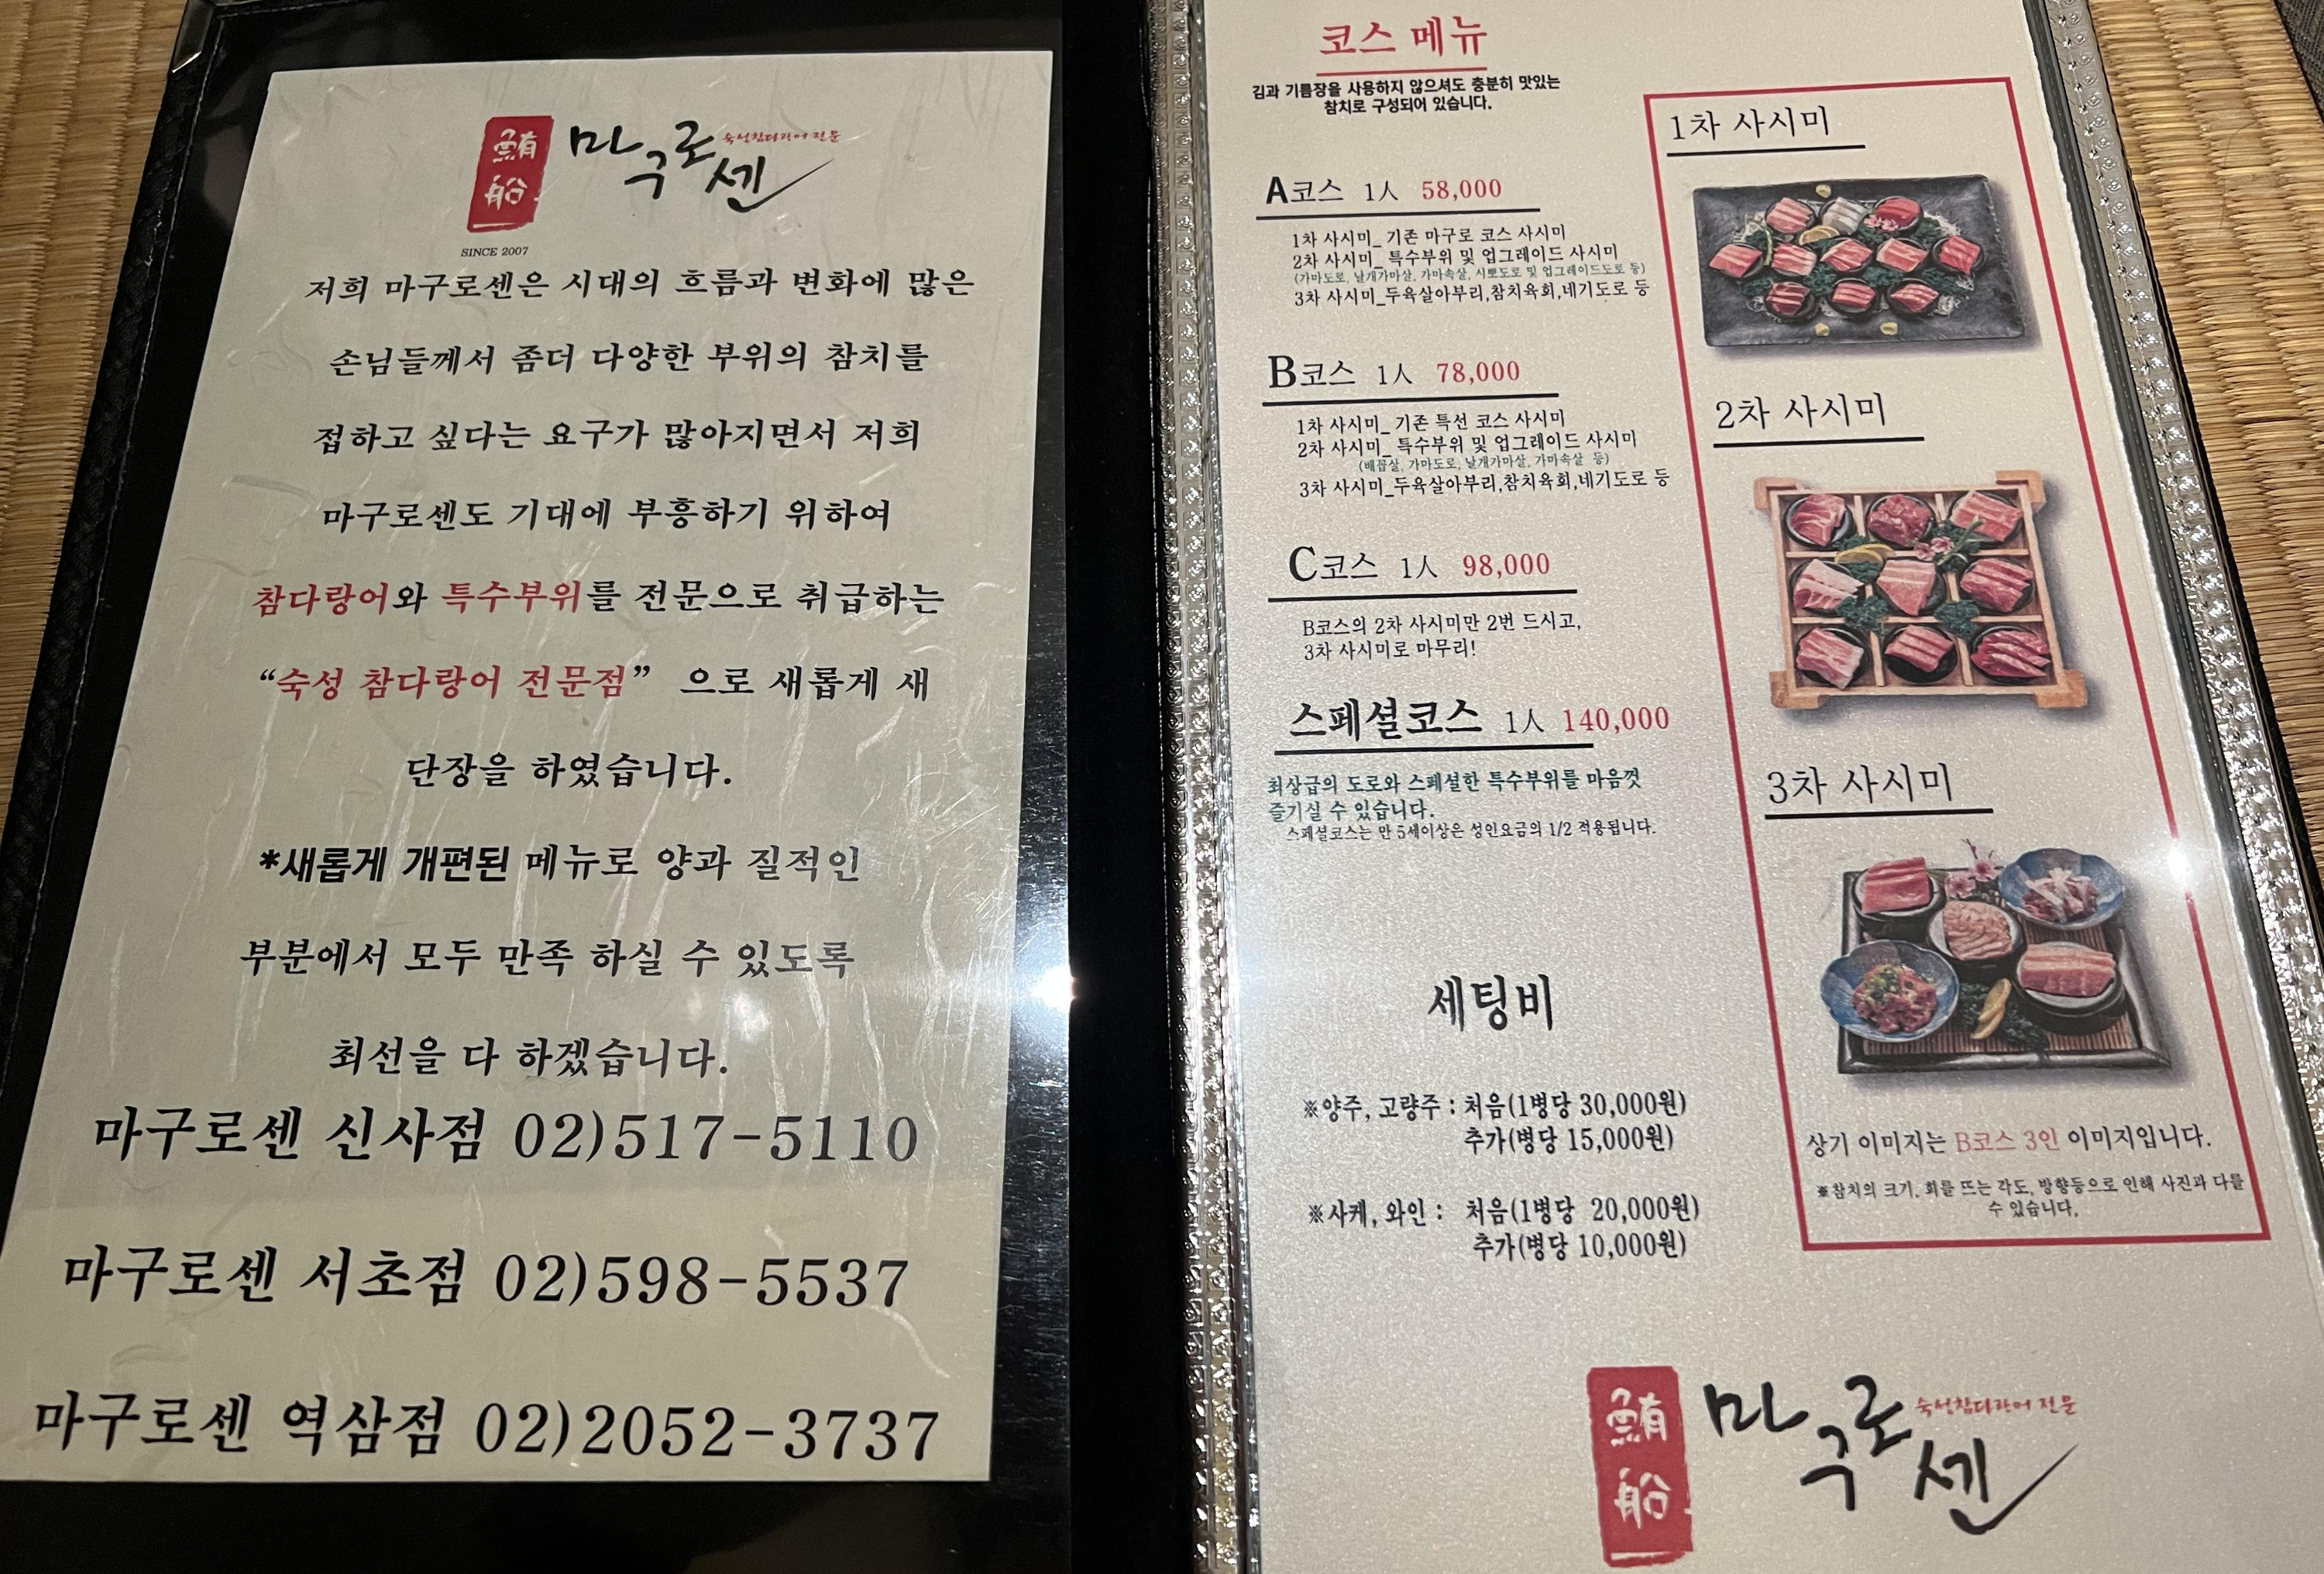 鮪船
마구로센
숙성참다랑어 전문
SINCE 2007
저희 마구로센은 시대의 흐름과 변화에 많은
손님들께서 좀더 다양한 부위의 참치를
접하고 싶다는 요구가 많아지면서 저희
마구로센도 기대에 부흥하기 위하여
참다랑어와 특수부위를 전문으로 취급하는
“숙성 참다랑어 전문점” 으로 새롭게 새
단장을 하였습니다.
*새롭게 개편된 메뉴로 양과 질적인
부분에서 모두 만족 하실 수 있도록
최선을 다 하겠습니다.
마구로센 신사점 02)517-5110
마구로센 서초점 02)598-5537
마구로센 역삼점 02)2052-3737
코스 메뉴
김과 기름장을 사용하지 않으셔도 충분히 맛있는
참치로 구성되어 있습니다.
A코스 1人 58,000
1차 사시미_ 기존 마구로 코스 사시미
2차 사시미_ 특수부위 및 업그레이드 사시미
(가마도로, 날개가마살, 가마속살, 시뽀도로 및 업그레이드도로 등)
3차 사시미_두육살아부리,참치육회,네기도로 등
B코스 1人 78,000
1차 사시미_ 기존 특선 코스 사시미
2차 사시미_ 특수부위 및 업그레이드 사시미
(배꼽살, 가마도로, 날개가마살, 가마속살 등)
3차 사시미_두육살아부리,참치육회,네기도로 등
C코스 1人 98,000
B코스의 2차 사시미만 2번 드시고,
3차 사시미로 마무리!
스페셜코스 1人 140,000
최상급의 도로와 스페셜한 특수부위를 마음껏
즐기실 수 있습니다.
스페셜코스는 만 5세이상은 성인요금의 1/2 적용됩니다.
세팅비
※양주, 고량주 : 처음(1병당 30,000원)
추가(병당 15,000원)
※사케, 와인 : 처음(1병당 20,000원)
추가(병당 10,000원)
1차 사시미
2차 사시미
3차 사시미
상기 이미지는 B코스 3인 이미지입니다.
※참치의 크기, 회를 뜨는 각도, 방향등으로 인해 사진과 다를
수 있습니다.
鮪船
마구로센
숙성참다랑어 전문